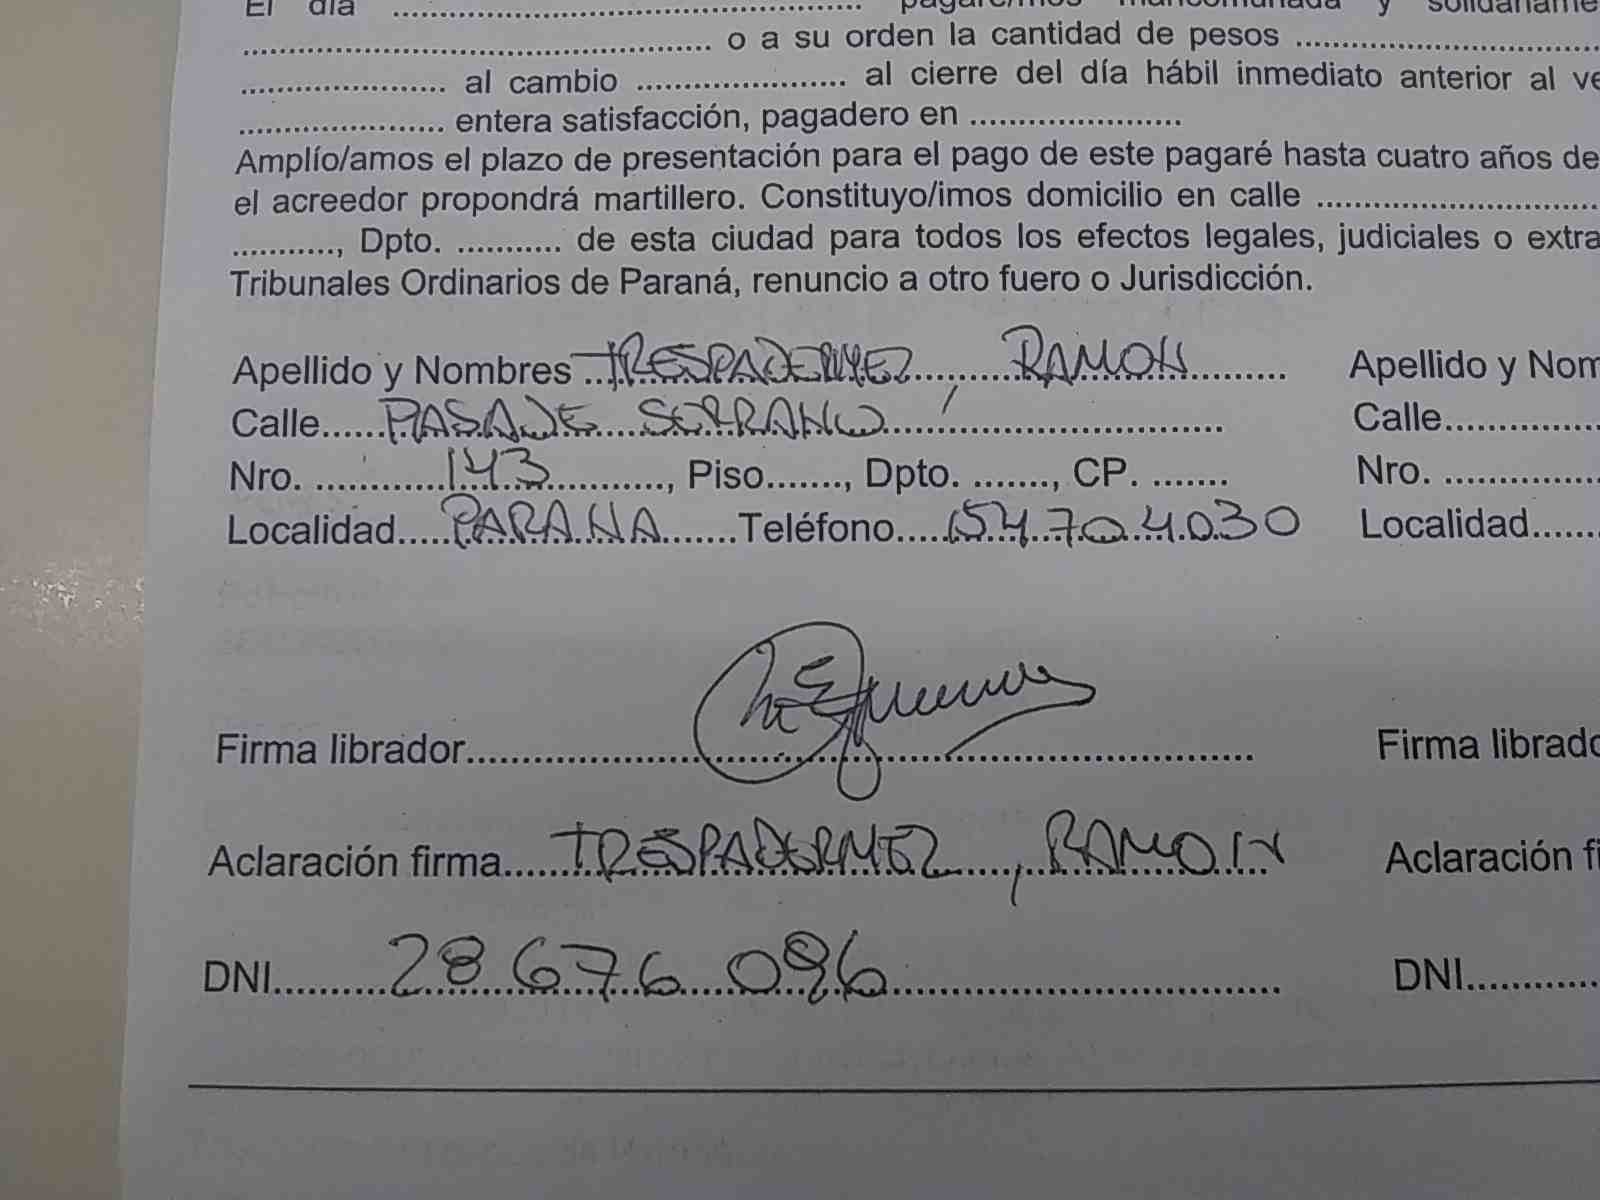 El día .................................................... pagaré/mos mancomunada y solidariame
.................................................... o a su orden la cantidad de pesos ..................................
....................... al cambio ....................... al cierre del día hábil inmediato anterior al ve
....................... entera satisfacción, pagadero en .......................
Amplío/amos el plazo de presentación para el pago de este pagaré hasta cuatro años de
el acreedor propondrá martillero. Constituyo/imos domicilio en calle ...............................
............, Dpto. ............ de esta ciudad para todos los efectos legales, judiciales o extra
Tribunales Ordinarios de Paraná, renuncio a otro fuero o Jurisdicción.
Apellido y Nombres TRESPADERMEZ, RAMON Apellido y Nom
Calle PASAJE SERRANO Calle
Nro. 143, Piso......., Dpto. ......., CP. ....... Nro.
Localidad PARANA Teléfono 154704030 Localidad
Firma librador Firma librado
Aclaración firma TRESPADERMEZ, RAMON Aclaración fi
DNI 28 676 096 DNI